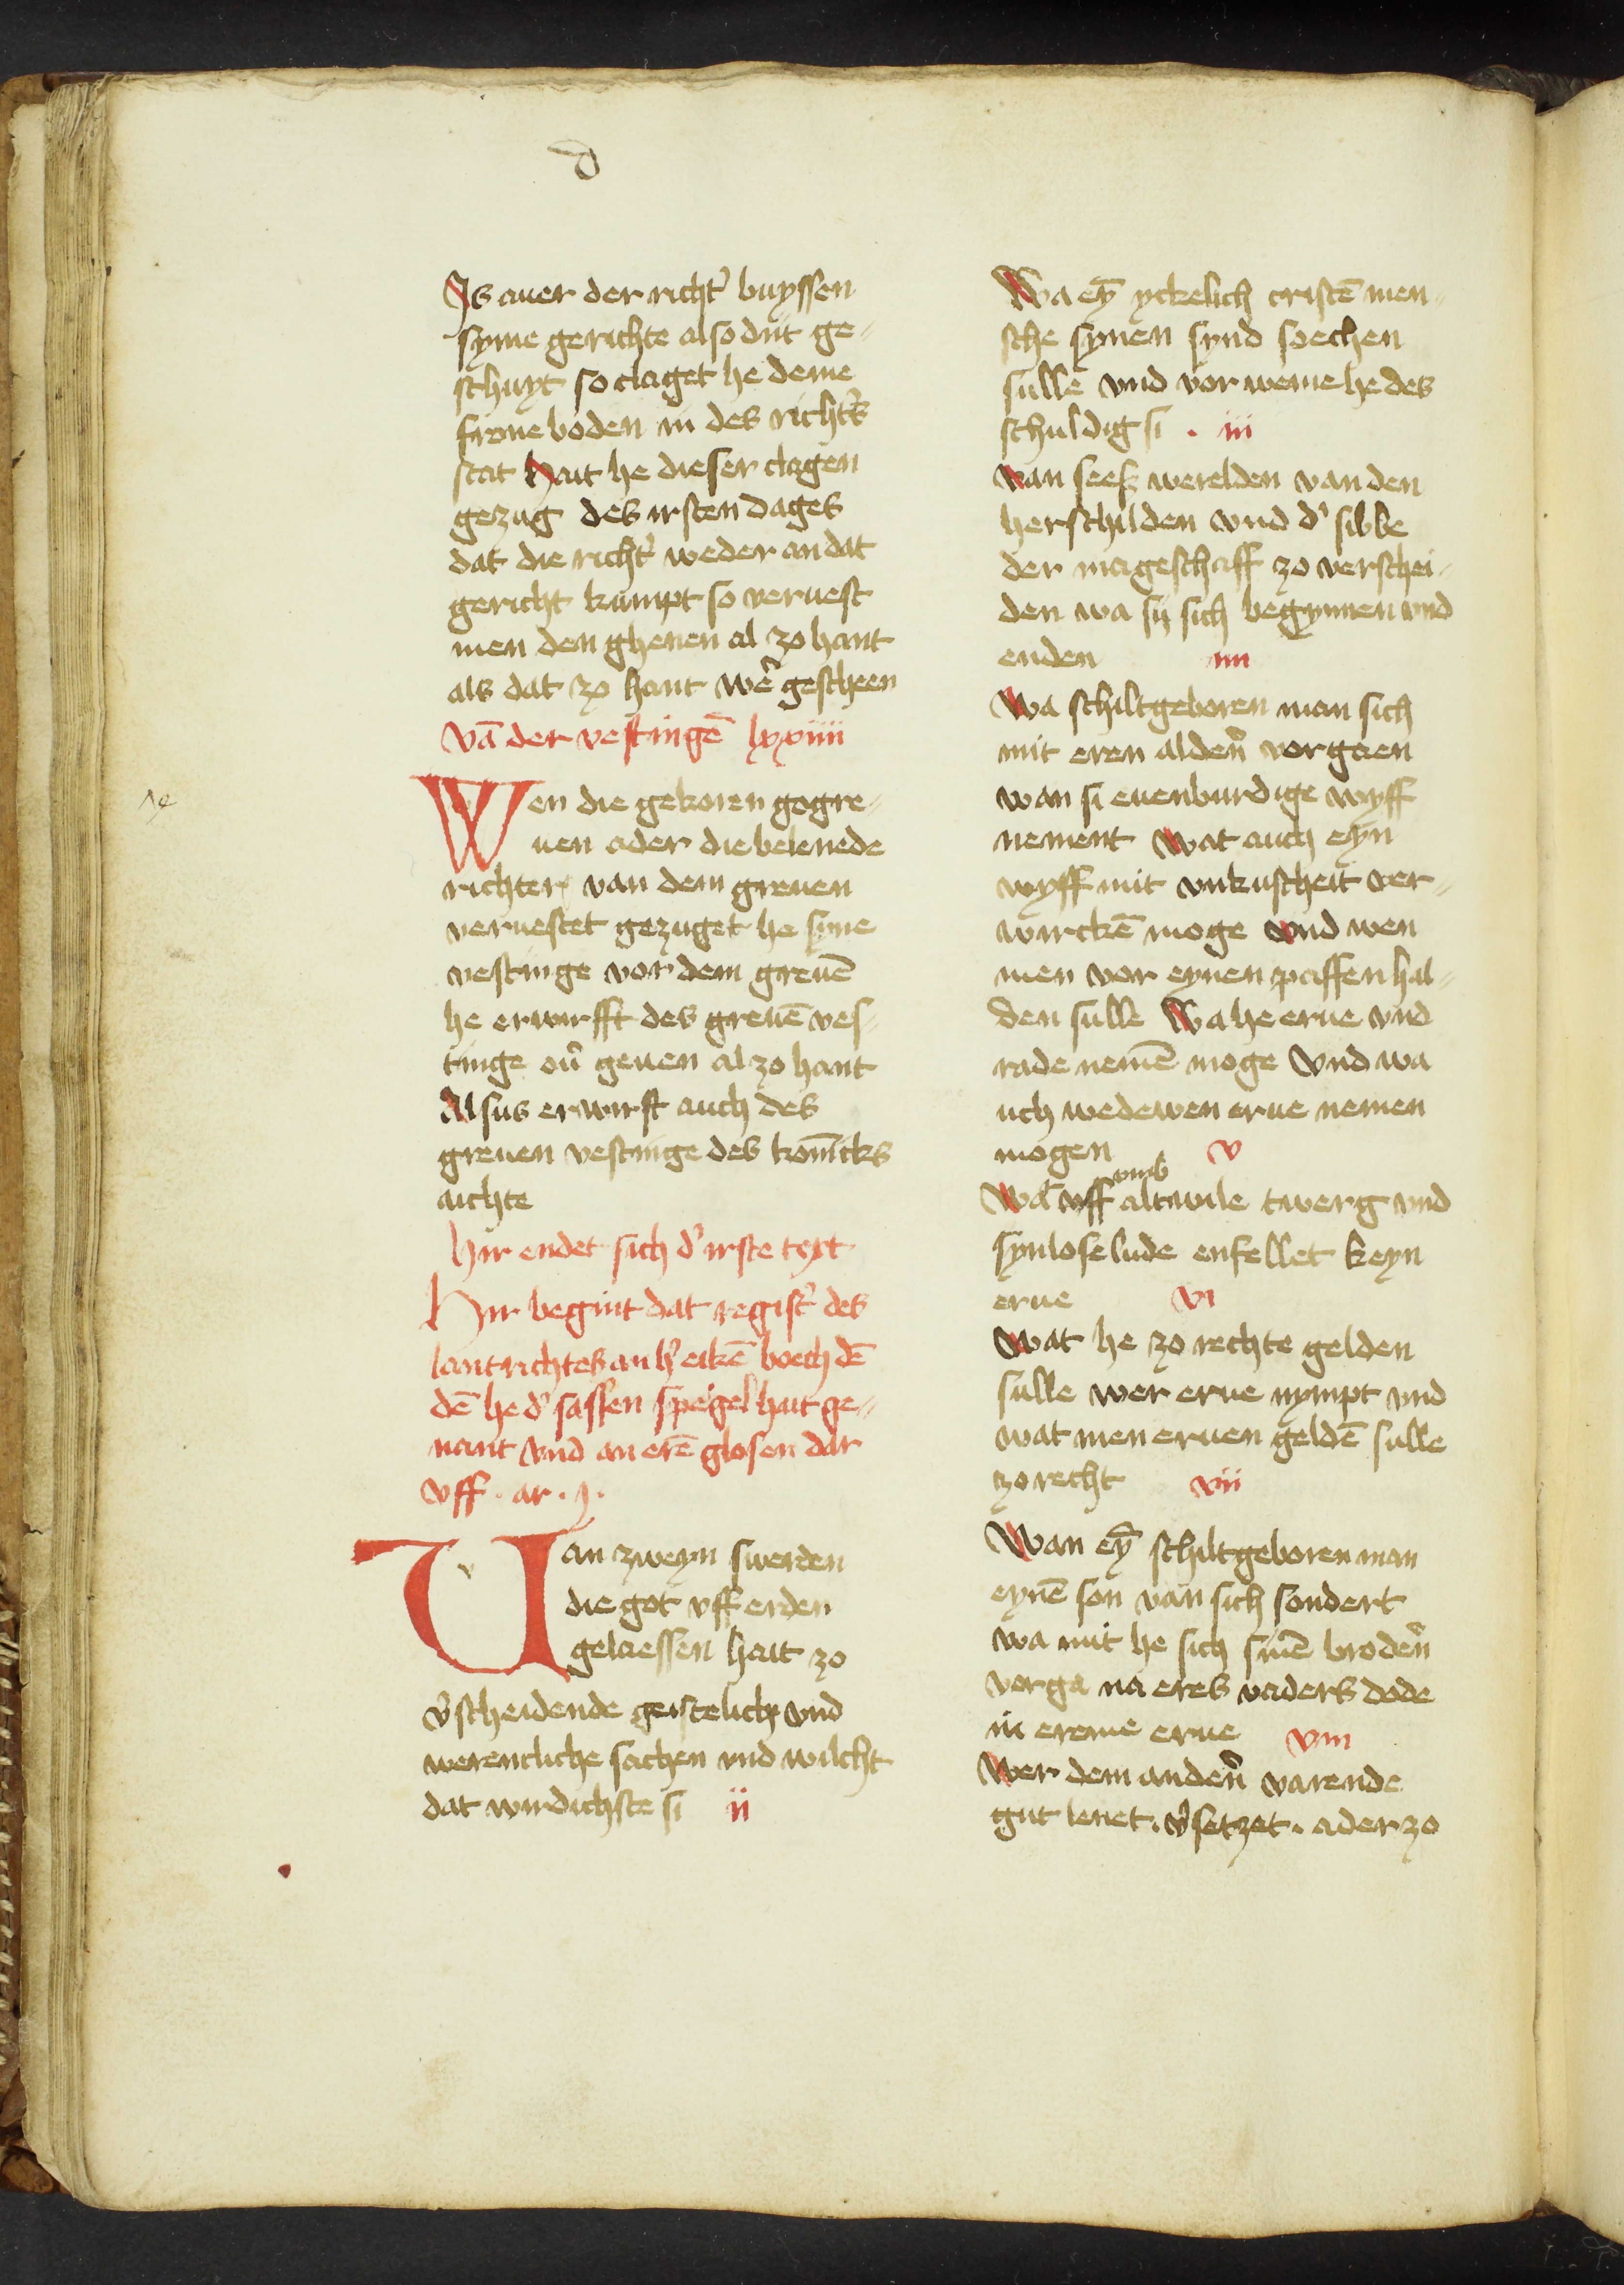 d
Is auer der richt̾ buyssen
syme gerichte also dut ge⸗
schuyt so claget he deme
frone boden in des richt̾s
stat hait he dieser clagen
gezug des irsten dages
dat die richt̾ weder an dat
gericht kumpt so veruest
men den ghenen al zo hant
als dat zo hant we̾r gescheen
Vā der vestingē lxxiiii
Wen die gekoren gogre⸗
uen ader die belenede
richter van dem greuen
veruestet gezuget he syne
vestinge vor dem greuē
he erwirfft des greuē ves⸗
tinge ou̾ geuen al zo hant
Alsus erwirft auch des
greuen vestinge des konīcks
aichte
Hir endet sich d̾ irste text
Hir begint dat regist̾ des
lantrichtes an h̾ eikē boech dē
dē he d̾ sassen spegel hait ge⸗
nant vnd an erē glosen dar
vff . ar . j .
Van zweyn swerden
die got vff erden
gelaessen hait zo
v̾scheidende geistelich vnd
werentliche sachen vnd wilcht
dat wirdichste si ii
Wa ey̅ yckelich cristē men⸗
sche synen synd soechen
sulle vnd vor weme he des
schuldig si . iii
Van sees werelden van den
herschilden vnd d̾ sibbe
der mageschaff zo verschei⸗
den wa sy sich begynnen vnd
enden iiii
Wa schiltgeboren man sich
mit eren alden̾ vorgaen
wan si euenburdige wyff
nement Wat auch eyn
wyff mit vnkuscheit ver⸗
wirckē moge vnd wen
men vor eynen paffen hal⸗
den sulle Wa he erue vnd
rade nemē moge Vnd wa
uch wedewen erue nemen
mogen v
vmb
Wa vff altwile twerg vnd
synlose lude enfellet keyn
erue vi
Wat he zo rechte gelden
sulle wer erue nympt vnd
wat men eruen geldē sulle
zo recht vii
Wan ey̅ schiltgeboren man
eynē son van sich sondert
wa mit he sich sinē broden̾
vorga na eres vaders dode
in ereme erue viii
Wer dem anden̾ varende
gut lenet . v̾setzet . ader zo